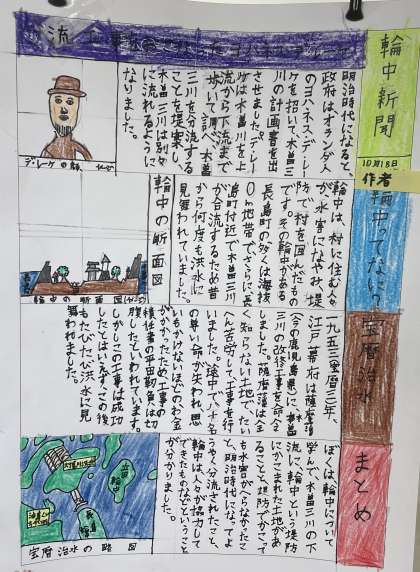 輪中新聞
10月18日
作者
明治時代になると、
政府はオランダ人
のヨハネス・デレー
ケを招いて、木曽三
川の計画書を出
させました。デレー
ケは木曽川を上
流から下流まで
歩いて調べ、木曽
三川を分流する
ことを提案し、
木曽三川は別々
に流れるように
なりました。
デレーケの顔
輪中って
輪中は、村に住む人々
が、水害になやみ、堤
防で村を囲んだもの
です。その輪中がある
長島町の多くは海抜
0m地帯で、さらに長
島町付近で木曽三川
が合流するため昔
から何度も洪水に
見舞われていました。
輪中の断面図
輪中の断面図
宝暦治水
一九五三宝暦三年、
江戸幕府は薩摩藩
(今の鹿児島県)に、木曽
三川の改修工事を命令
しました。薩摩藩は全
く知らない土地で、たい
へん苦労して工事を行
いました。途中で、十名
の尊い命が失われ、思
いもかけないほどのお金
がかかったため工事の
責任者の平田勒負は切
腹したといわれています。
しかしこの工事は成功
したとはいえず、この後
もたびたび洪水に見
舞われました。
まとめ
ぼくは、輪中について
学んで、木曽三川の下
流に、輪中という堤防
にかこまれた土地があ
ることと、堤防でかこって
も水害がへらなかったこ
と、明治時代になってよ
うやく分流されたこと、
輪中は人々が協力して
できたものなんやということ
が分かりました。
宝暦治水の略図